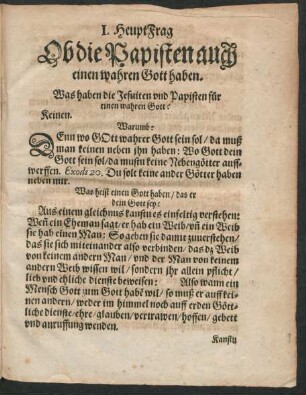 I. HeuptFrag
Ob die Papisten auch
einen wahren Gott haben.
Was haben die Jesuiten vnd Papisten für
einen wahren Gott?
Keinen.
Warumb?
DEnn wo GOtt wahrer Gott sein sol / da muß
man keinen neben ihn haben: Wo Gott dein
Gott sein sol / da mustu keine Nebengötter auff-
werffen. Exod: 20. Du solt keine ander Götter haben
neben mir.
Was heist einen Gott haben / das er
dein Gott sey?
Aus einem gleichnus kanstu es einfeltig verstehen:
Weñ ein Eheman sagt / er hab ein Weib / vñ ein Weib
sie hab einen Man: So geben sie damit zuuerstehen /
das sie sich miteinander also verbinden / das dz Weib
von keinem andern Man / vnd der Man von keinem
andern Weib wissen wil / sondern ihr allein pflicht /
lieb vnd ehliche dienste beweisen: Also wann ein
Mensch Gott zum Gott habẽ wil / so muß er auff kei-
nen andern / weder im himmel noch auff erden Gött-
liche dienste / ehre / glauben / vertrawen / hoffen / gebett
vnd anruffung wenden.
Kanstu